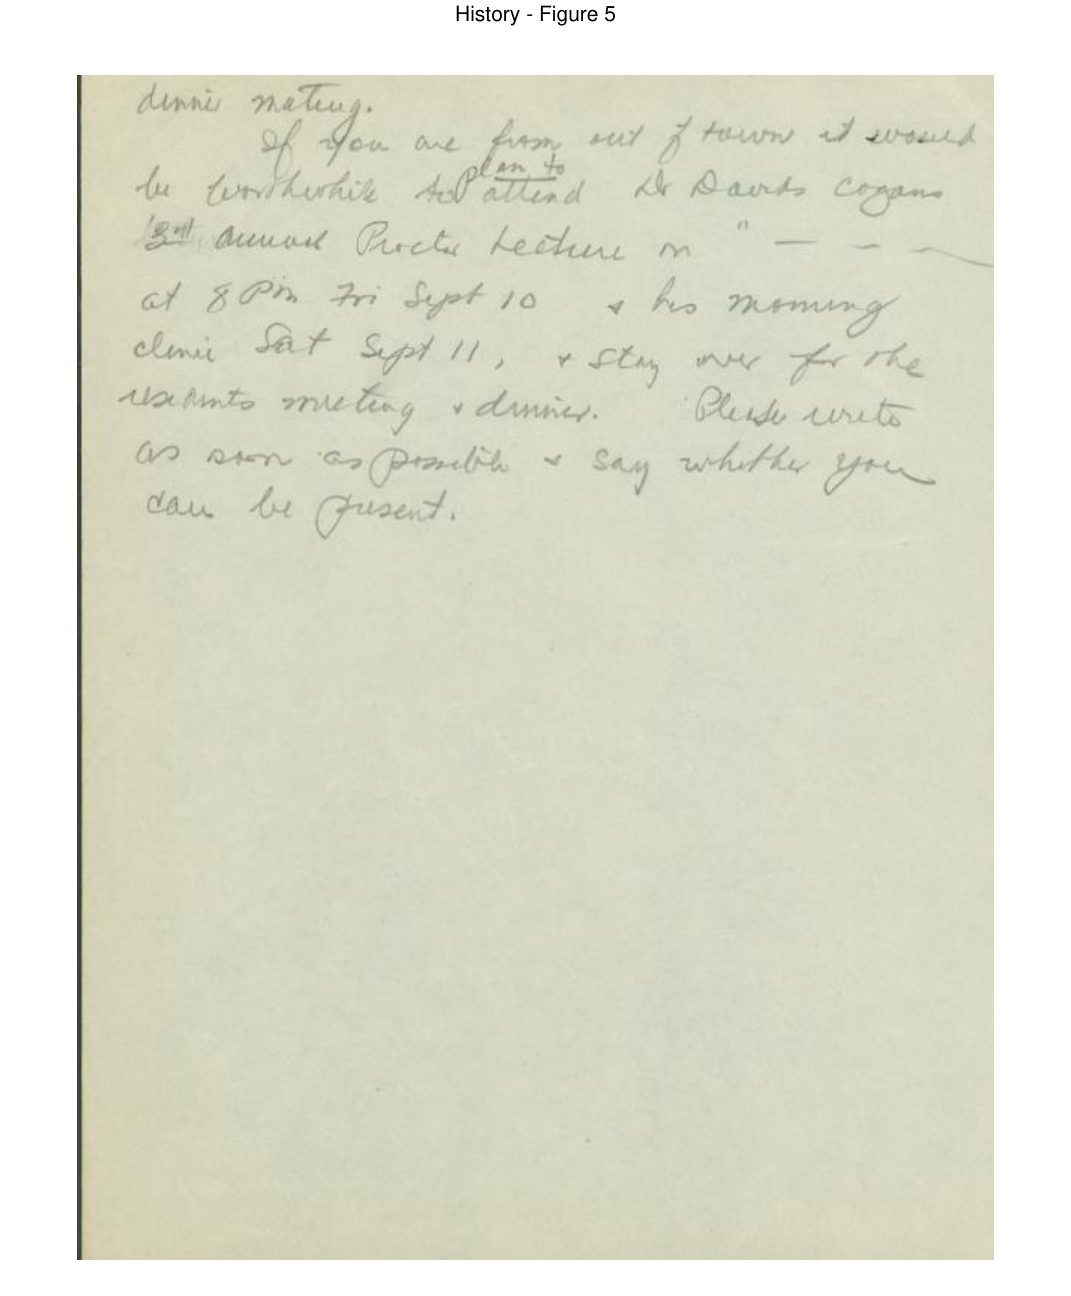 History - Figure 5
dinner meeting.
If you are from out of town it would
be worthwhile to plan to attend Dr Davids Cogans
3rd annual Proctor Lecture on " — — —
at 8 Pm Fri Sept 10 + his morning
clinic Sat Sept 11, + stay over for the
residents meeting + dinner. Please write
as soon as possible + say whether you
can be present.